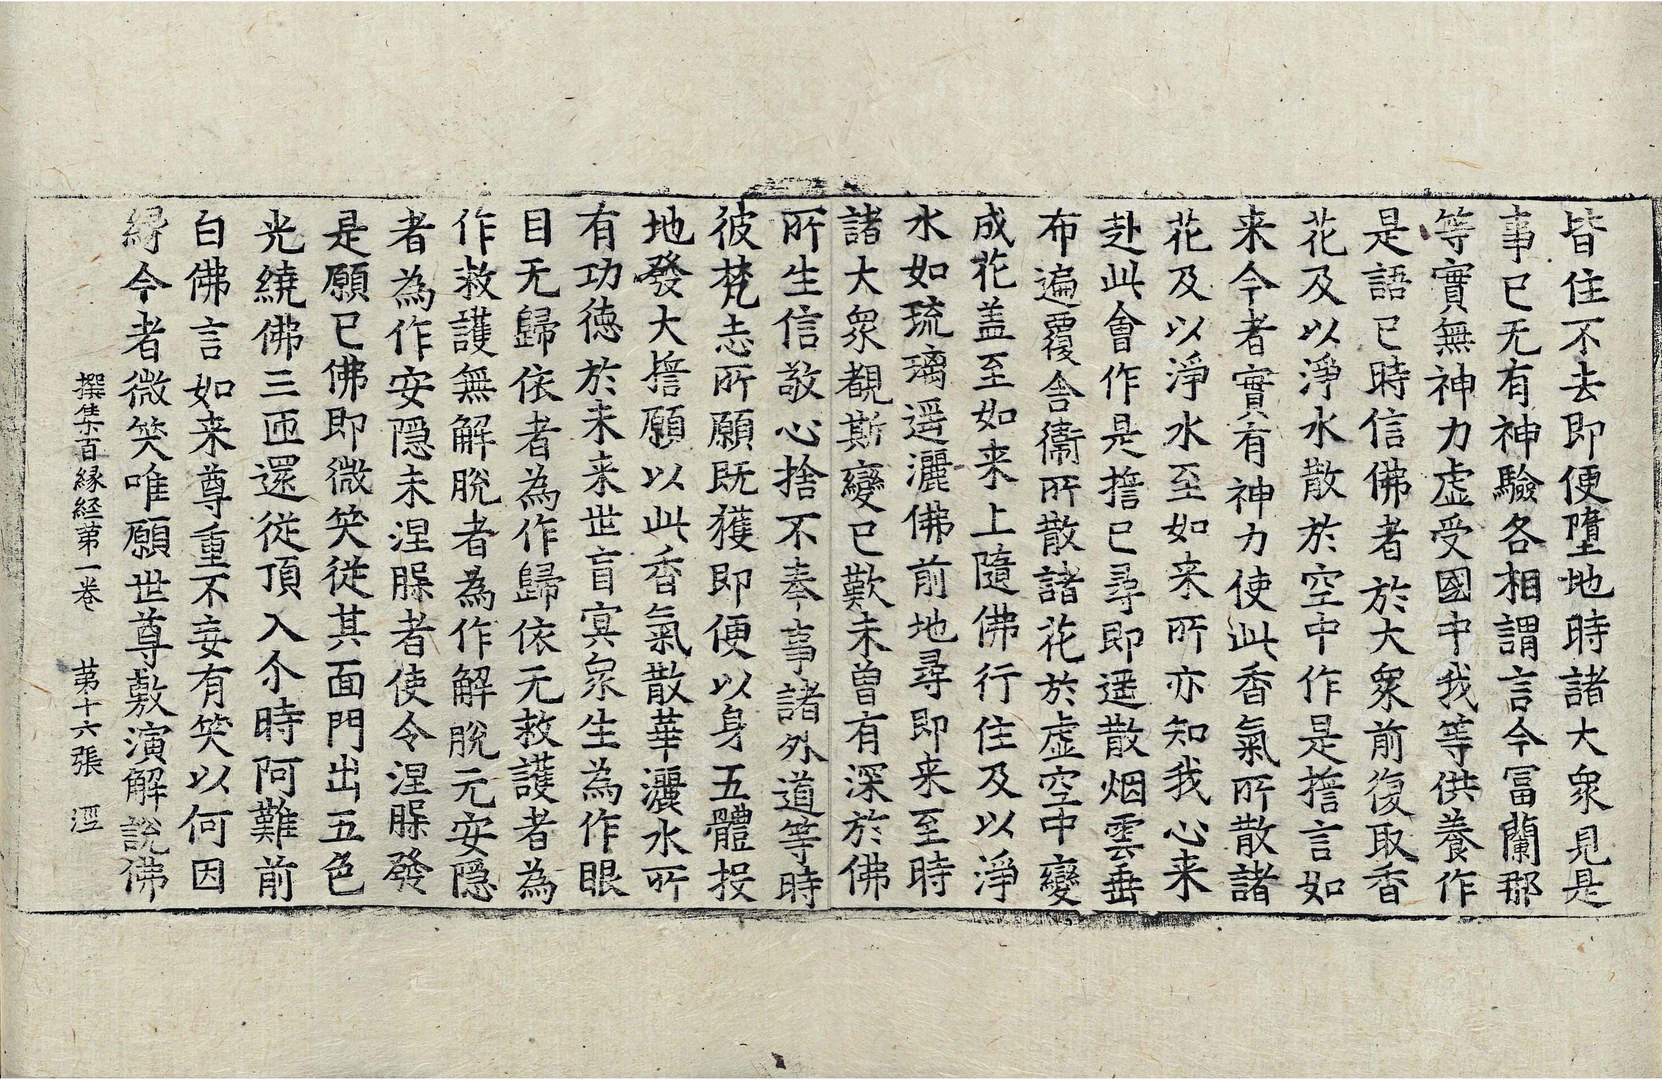 皆住不去即便墮地時諸大衆見是
事已无有神驗各相謂言今冨蘭那
等實無神力虛受國中我等供養作
是語已時信佛者於大衆前復取香
花及以淨水散於空中作是擔言如
来今者實有神力使此香氣所散諸
花及以淨水至如来所亦知我心来
赴此會作是擔已尋即遥散烟雲垂
布遍覆舎衞所散諸花於虛空中變
成花盖至如来上隨佛行住及以淨
水如琉璃遥灑佛前地尋即来至時
諸大衆覩斯變已歎未曽有深於佛
所生信敬心捨不奉事諸外道等時
彼梵志所願既獲即便以身五體投
地發大擔願以此香氣散華灑水所
有功徳於未来世盲冥衆生為作眼
目无歸依者為作歸依无救護者為
作救護無解脫者為作解脫无安隱
者為作安隱未涅槃者使令涅槃發
是願已佛即微笑従其面門出五色
光繞佛三匝還従頂入尒時阿難前
白佛言如来尊重不妄有笑以何因
縁今者微笑唯願世尊敷演解說佛
撰集百縁経苐一卷 苐十六張 涇